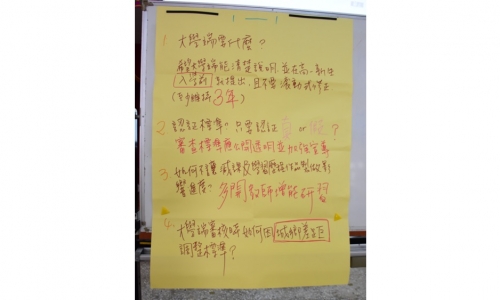 1 大學端要什麼?
希望大學端能清楚說明,並在高一新生
入學前就提出,且不要滾動式修正
(至少維持3年)
2 認証標準:只要認証 or ?
審查標準應公開透明並加強宣導
3 如何引導或課及學習歷程作品製做影
響進度。多開教師增能研習
4 大學端審核時如何因城鄉差距
調整標準?